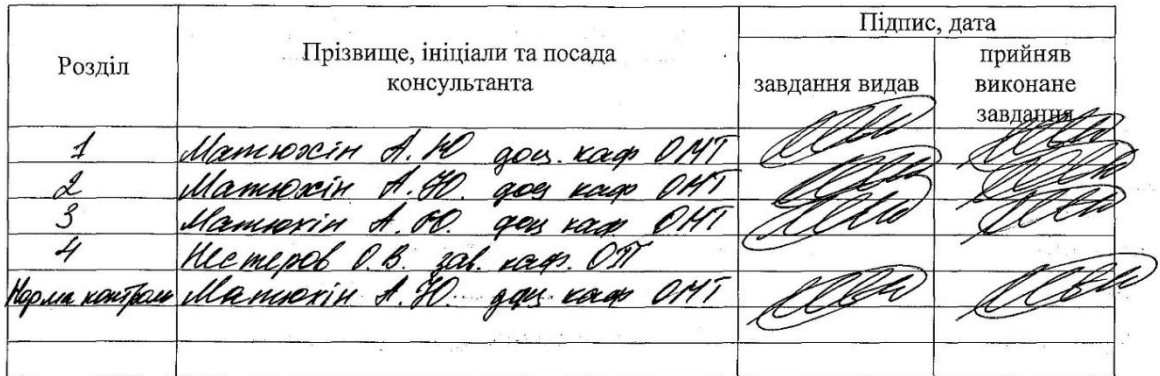 Розділ
Прізвище, ініціали та посада
консультанта
Підпис, дата
завдання видав
прийняв
виконане
завдання
1 Матюхін А. Ю доц. каф ОМТ
2 Матюхін А. Ю. доц каф ОМТ
3 Матюхін А. Ю. доц каф ОМТ
4 Нестеров О. В. зав. каф. ОП
Норма контроль Матюхін А. Ю. доц каф ОМТ